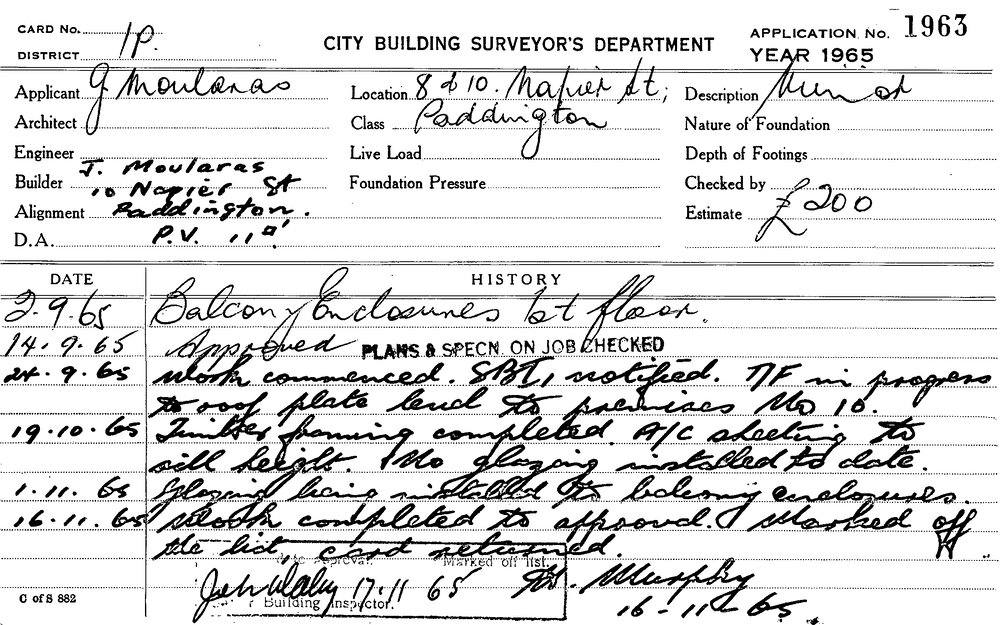 CARD No. 1P.
DISTRICT
CITY BUILDING SURVEYOR'S DEPARTMENT
APPLICATION No. 1963
YEAR 1965
Applicant G Moularas
Location 8 & 10. Napier St;
Description Minor
Architect
Class Paddington
Nature of Foundation
Engineer
Live Load
Depth of Footings
Builder J. Moularas
10 Napier St
Foundation Pressure
Checked by
Alignment Paddington.
Estimate £200
D.A. P.V. 11
DATE HISTORY
2.9.65 Balcony Enclosures 1st floor.
14.9.65 Approved PLANS & SPECN. ON JOB CHECKED
24.9.65 Work commenced. SBI, notified. T/F in progress
to roof plate level to premises No 10.
19.10.65 Timber framing completed. A/C sheeting to
sill height. No glazing installed to date.
1.11.65 Glazing being installed to balcony enclosures.
16.11.65 Work completed to approval. Marked off
the list, card returned.
Approval. Marked off list.
17.11 65 Murphy
Building Inspector.
16-11-65.
C of S 882